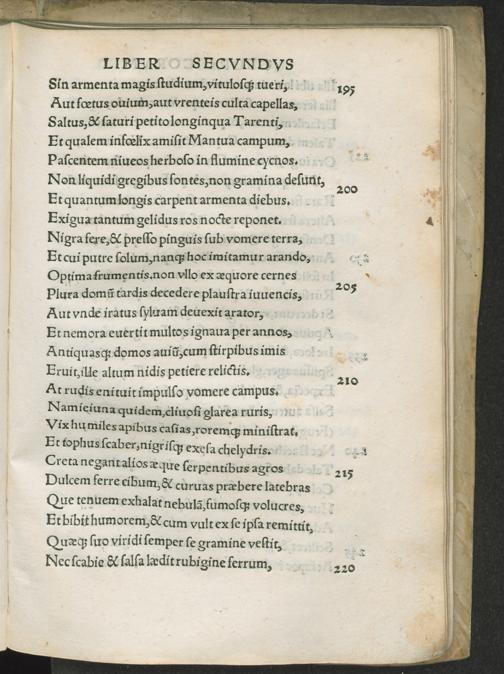 LIBER SECVNDVS
Sin armenta magis studium, vitulosq; tueri, 195
Aut fœtus ouium, aut vrenteis culta capellas,
Saltus, & saturi petito longinqua Tarenti,
Et qualem infœlix amisit Mantua campum,
Pascentem niueos herboso in flumine cycnos.
Non liquidi gregibus fontes, non gramina desunt,
Et quantum longis carpent armenta diebus. 200
Exigua tantum gelidus ros nocte reponet.
Nigra fere, & presso pinguis sub vomere terra,
Et cui putre solum, nanq; hoc imitamur arando,
Optima frumentis. non vllo ex æquore cernes
Plura domũ tardis decedere plaustra iuuencis, 205
Aut vnde iratus syluam deuexit arator,
Et nemora euertit multos ignaua per annos,
Antiquasq; domos auiũ, cum stirpibus imis
Eruit, ille altum nidis petiere relictis.
At rudis enituit impulso vomere campus. 210
Nam ieiuna quidem, cliuosi glarea ruris,
Vix humiles apibus casias, roremq; ministrat.
Et tophus scaber, nigrisq; exesa chelydris.
Creta negant alios æque serpentibus agros
Dulcem ferre cibum, & curuas præbere latebras 215
Que tenuem exhalat nebulã, fumosq; volucres,
Et bibit humorem, & cum vult ex se ipsa remittit,
Quæq; suo viridi semper se gramine vestit,
Nec scabie & salsa lædit rubigine ferrum, 220